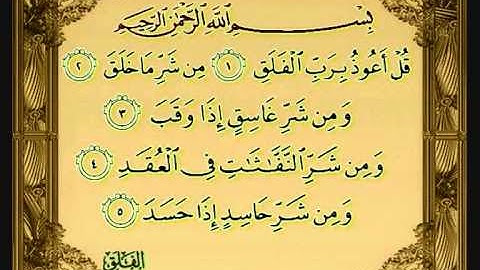 بِسْمِ اللَّهِ الرَّحْمَٰنِ الرَّحِيمِ
قُلْ أَعُوذُ بِرَبِّ الْفَلَقِ ١ مِن شَرِّ مَا خَلَقَ ٢
وَمِن شَرِّ غَاسِقٍ إِذَا وَقَبَ ٣
وَمِن شَرِّ النَّفَّاثَاتِ فِي الْعُقَدِ ٤
وَمِن شَرِّ حَاسِدٍ إِذَا حَسَدَ ٥
الفلق